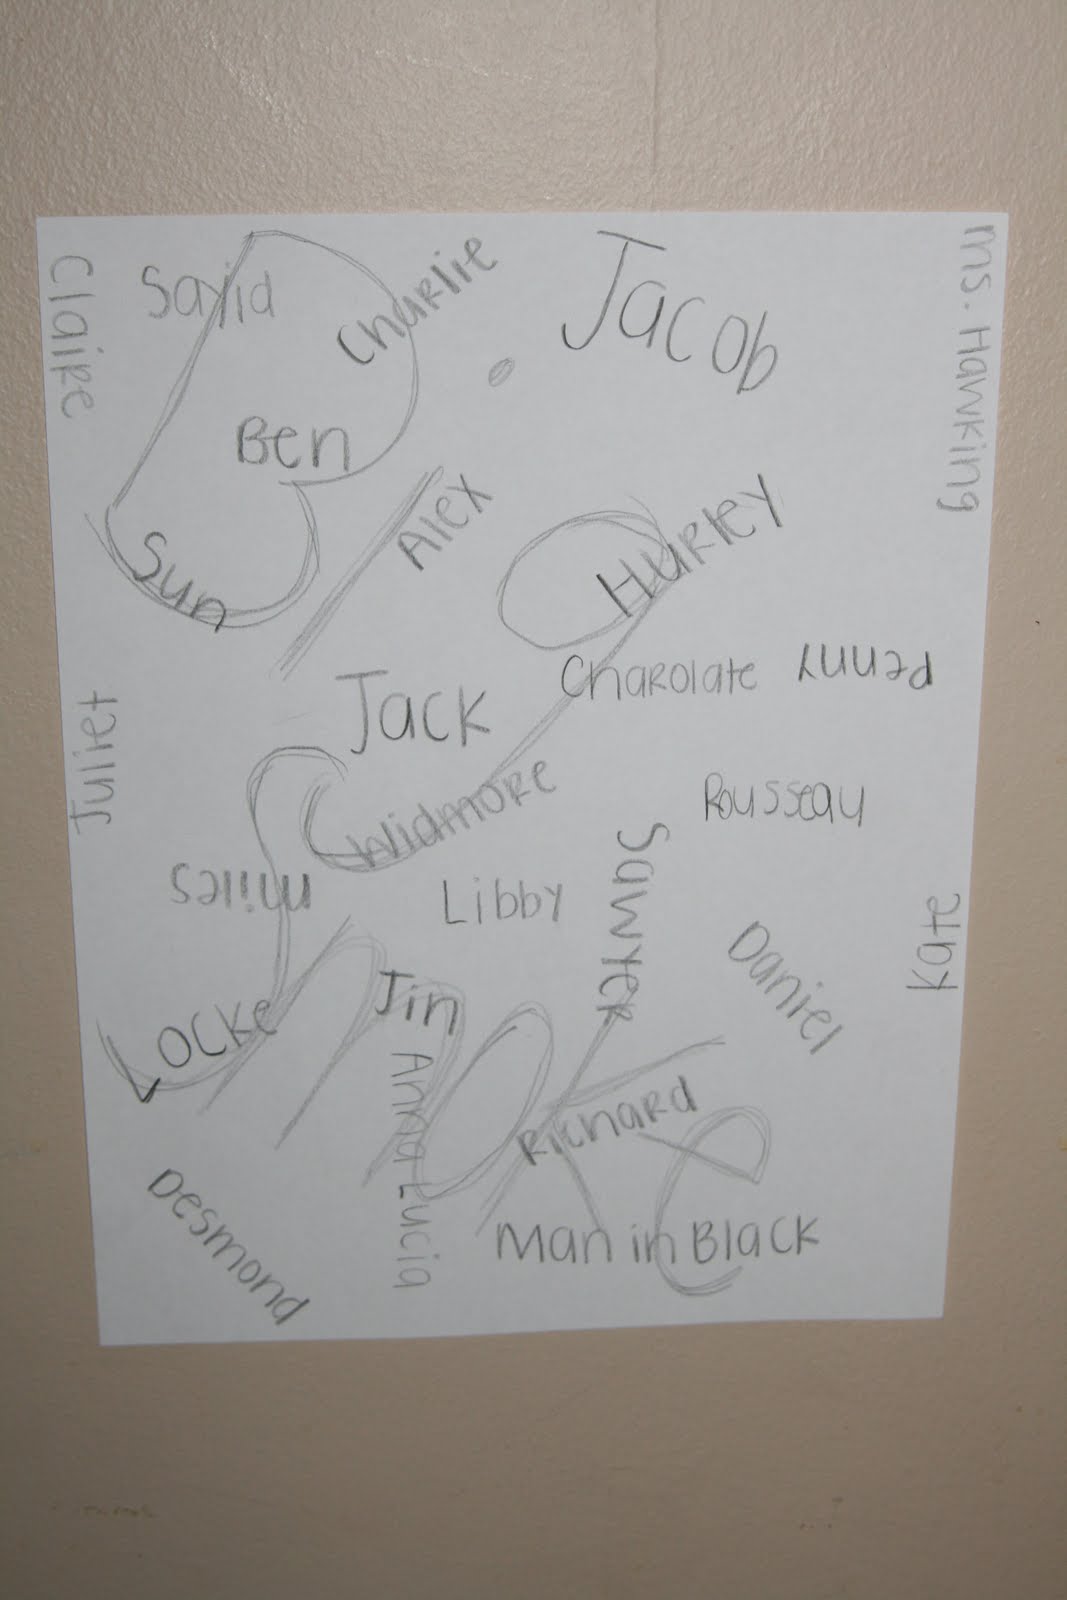 Claire
Sayid
Charlie
Jacob
Ms. Hawking
Ben
Alex
Sun
Hurley
Charolate
Penny
Jack
Juliet
Widmore
Rousseau
Miles
Libby
Sawyer
Kate
Daniel
Jin
Locke
Anna Lucia
Richard
Desmond
Man in Black